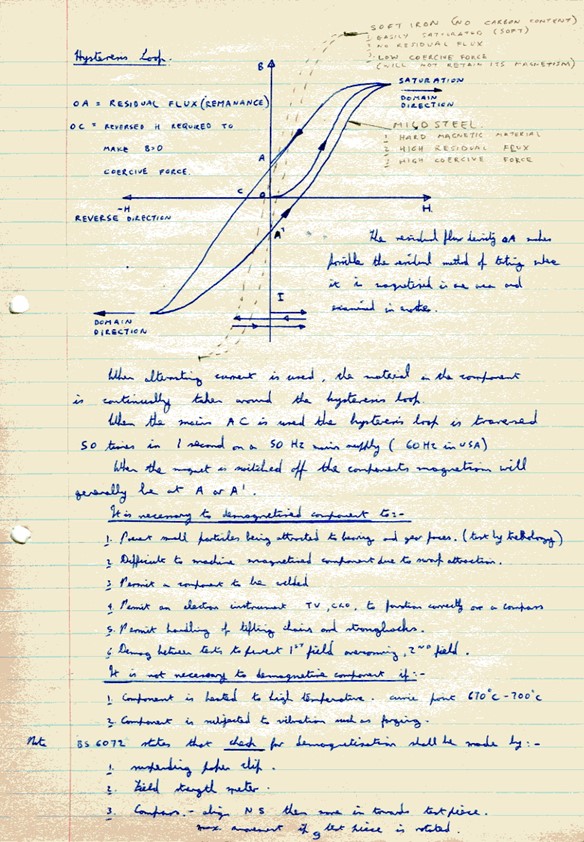 SOFT IRON (NO CARBON CONTENT)
1 EASILY SATURATED (SOFT)
2 NO RESIDUAL FLUX
3 LOW COERCIVE FORCE
(WILL NOT RETAIN ITS MAGNETISM)
Hysteresis Loop.
B
SATURATION
DOMAIN
DIRECTION
OA = RESIDUAL FLUX (REMANANCE)
OC = REVERSED H REQUIRED TO
MAKE B=0
COERCIVE FORCE.
MILD STEEL.
1 HARD MAGNETIC MATERIAL
2 HIGH RESIDUAL FLUX
3 HIGH COERCIVE FORCE
A
C
O
-H
H
REVERSE DIRECTION
A'
I
DOMAIN
DIRECTION
The residual flux density OA makes
possible the residual method of testing where
it is magnetised in one area and
examined in another.
When alternating current is used, the material in the component
is continually taken around the hysteresis loop.
When the mains AC is used the hysteresis loop is traversed
50 times in 1 second on a 50 Hz mains supply (60Hz in USA)
When the magnet is switched off the components magnetism will
generally be at A or A'.
It is necessary to demagnetised component to:-
1. Prevent small particles being attracted to bearing and gear faces. (test by tribology)
2 Difficult to machine magnetised component due to swarf attraction.
3 Permit a component to be welded
4. Permit an electron instrument TV, CRO, to function correctly or a compass
5. Permit handling of lifting chains and strongbacks.
6 Demag between tests to prevent 1ST field overcoming 2ND field.
It is not necessary to demagnetise component if:-
1. Component is heated to high temperature. curie point 670°C - 700°C
2 Component is subjected to vibration such as forging.
Note BS 6072 states that check for demagnetisation shall be made by:-
1. suspending paper clip.
2. Field strength meter.
3. Compass. - align NS then move in towards test piece.
max movement if test piece is rotated.